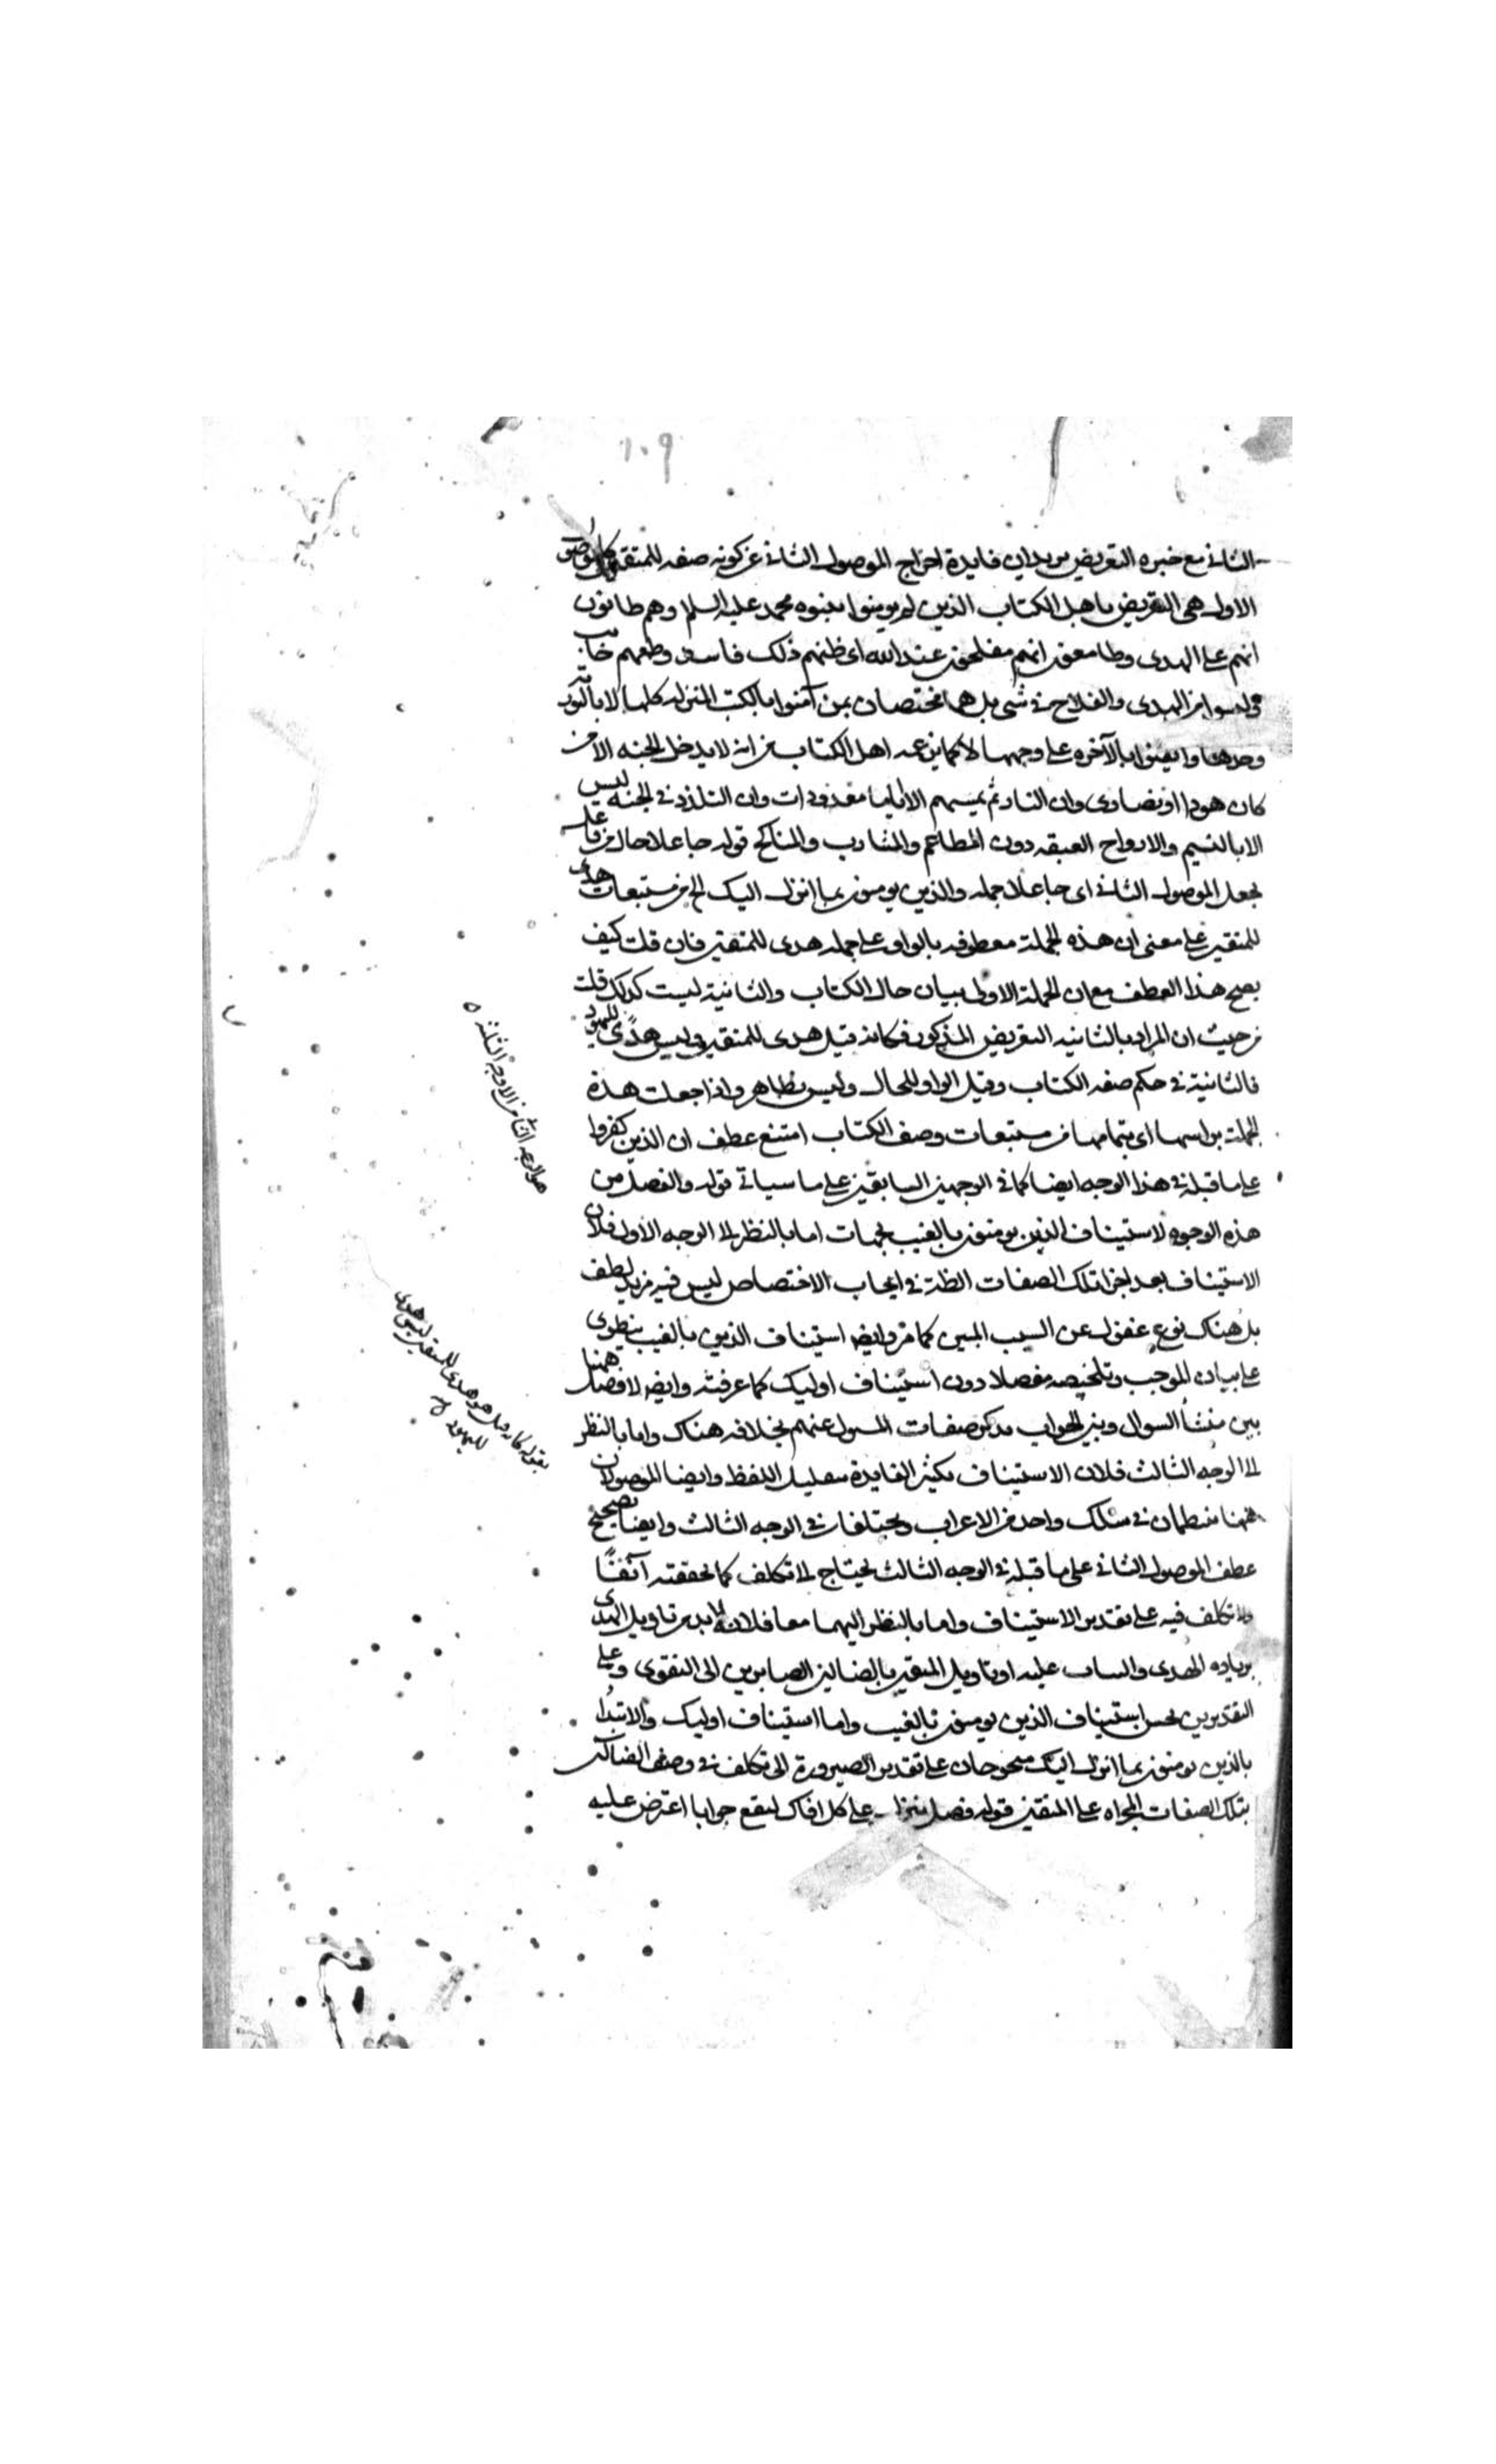 ١٠٩
الثانى مع خبره التعريض يريد ان فايدة اخراج الموصول الثانى عن كونه صفه للمتقين كالموصول
الاول هى التعريض باهل الكتاب الذين لم يومنوا بنبوه محمد عليه السلم وهم ظانون
انهم على الهدى وطامعون انهم مفلحون عند الله اى ظنهم ذلك فاسد وطمعهم خايب
وليسوا من الهدى والفلاح فى شى بل هما مختصان بمن آمنوا بالكتب المنزله كلها لا بالتوريه
وحدها وايقنوا بالآخره على وجهها لا كما يزعمه اهل الكتاب من انه لا يدخل الجنه الا من
كان هودا او نصارى وان النار لم يمسهم الا اياما معدودات وان التلذذ فى الجنه ليس
الا بالنسيم والارواح العبقه دون المطاعم والمشارب والمناكح قوله جاعلا حال من فاعل
يجعل الموصول الثانى اى جاعلا جمله والذين يومنون بما انزل اليك الخ من مستتبعات هدى
للمتقين على معنى ان هذه الجملة معطوفه بالواو على جمله هدى للمتقين فان قلت كيف
يصح هذا العطف مع ان الجملة الاولى بيان حال الكتاب والثانية ليست كذلك قلت
من حيث ان المراد بالثانيه التعريض المذكور فكانه قيل هدى للمتقين وليس هدًى لليهود
فالثانية فى حكم صفه الكتاب وقيل الواو للحال وليس بظاهر واذا جعلت هذه
الجملة براسها اى بتمامها من مستتبعات وصف الكتاب امتنع عطف ان الذين كفروا
على ما قبله فى هذا الوجه ايضا كما فى الوجهين السابقين على ما سياتى قوله والفصل من
هذه الوجوه لاستيناف الذين يومنون بالغيب بجهات اما بالنظر الى الوجه الاول فلان
الاستيناف بعد اجرا تلك الصفات الظه فى ايجاب الاختصاص ليس فيه مزيد لطف
بل هناك نوع غفول عن السبب المبين كما مر وايضا استيناف الذين بالغيب ينطوى
على بيان الموجب وتلخيصه مفصلا دون استيناف اوليك كما عرفته وايضا لا فصل ههنا
بين منشأ السوال وبين الجواب بذكر صفات المسول عنهم بخلافه هناك واما بالنظر
الى الوجه الثالث فلان الاستيناف تكثير الفايدة بتقليل اللفظ وايضا الموصولان
ههنا منتظمان فى سلك واحد من الاعراب ومختلفان فى الوجه الثالث وايضا تصحيح
عطف الموصول الثانى على ما قبله فى الوجه الثالث يحتاج الى تكلف كما تحققته آنفًا
ولا تكلف فيه على تقدير الاستيناف واما بالنظر اليهما معا فلانه لا بد من تاويل الهدى
بزياده الهدى والثبات عليه او تاويل المتقين بالضالين الصايرين الى التقوى وعلى
التقديرين يحسن استيناف الذين يومنون بالغيب واما استيناف اوليك والابتدا
بالذين يومنون بما انزل اليك مرجوحان على تقدير الصيرورة الى تكلف فى وصف الضالين
بتلك الصفات المجراه على المتقين قوله فصل على كل افاك ليقع جوابا اعترض عليه
هو الوجه الثالث من الاوجه الثلثه
بقوله كانه قيل هو هدى للمتقين ليس هدى
لليهود